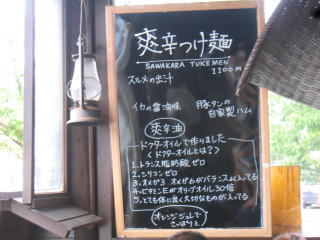 爽辛つけ麺
SAWAKARA TUKEMEN
1100円
スルメの出汁
イカの醤油味
豚タンの
自家製ハム
爽辛油
ドクターオイルで作りました
＜ドクターオイルとは？＞
1.トランス脂肪酸ゼロ
2.シリコンゼロ
3.オメガ3 オメガ6がバランスよく入ってる
4.ビタミンEがオリーブオイル30倍
5.とても体に良く大切なものが入ってる
オレンジジュレで
さっぱりと